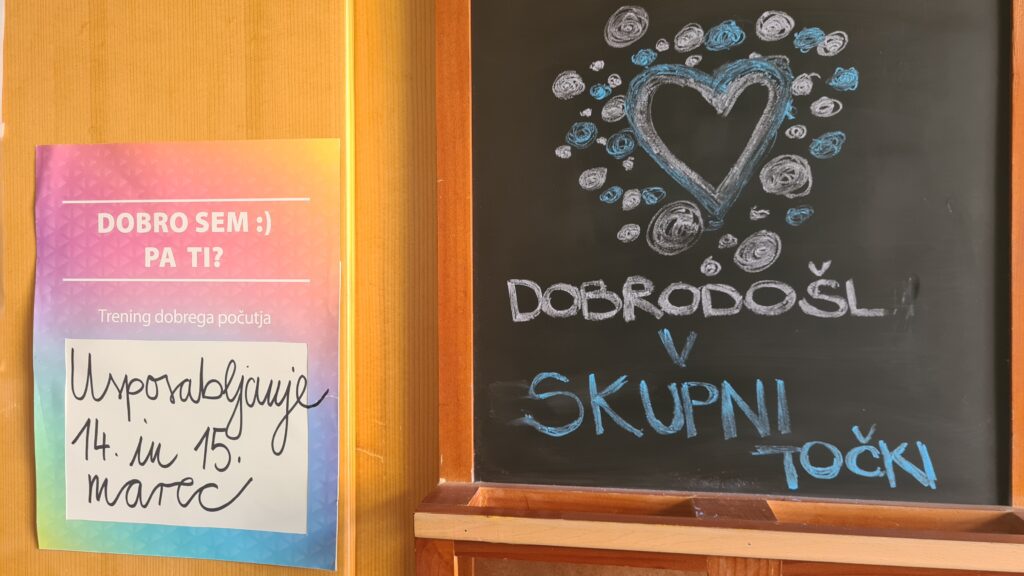 DOBRO SEM :)
PA TI?
Trening dobrega počutja
Usposabljanje
14. in 15.
marec
DOBRODOŠL
V
SKUPNI
TOČKI